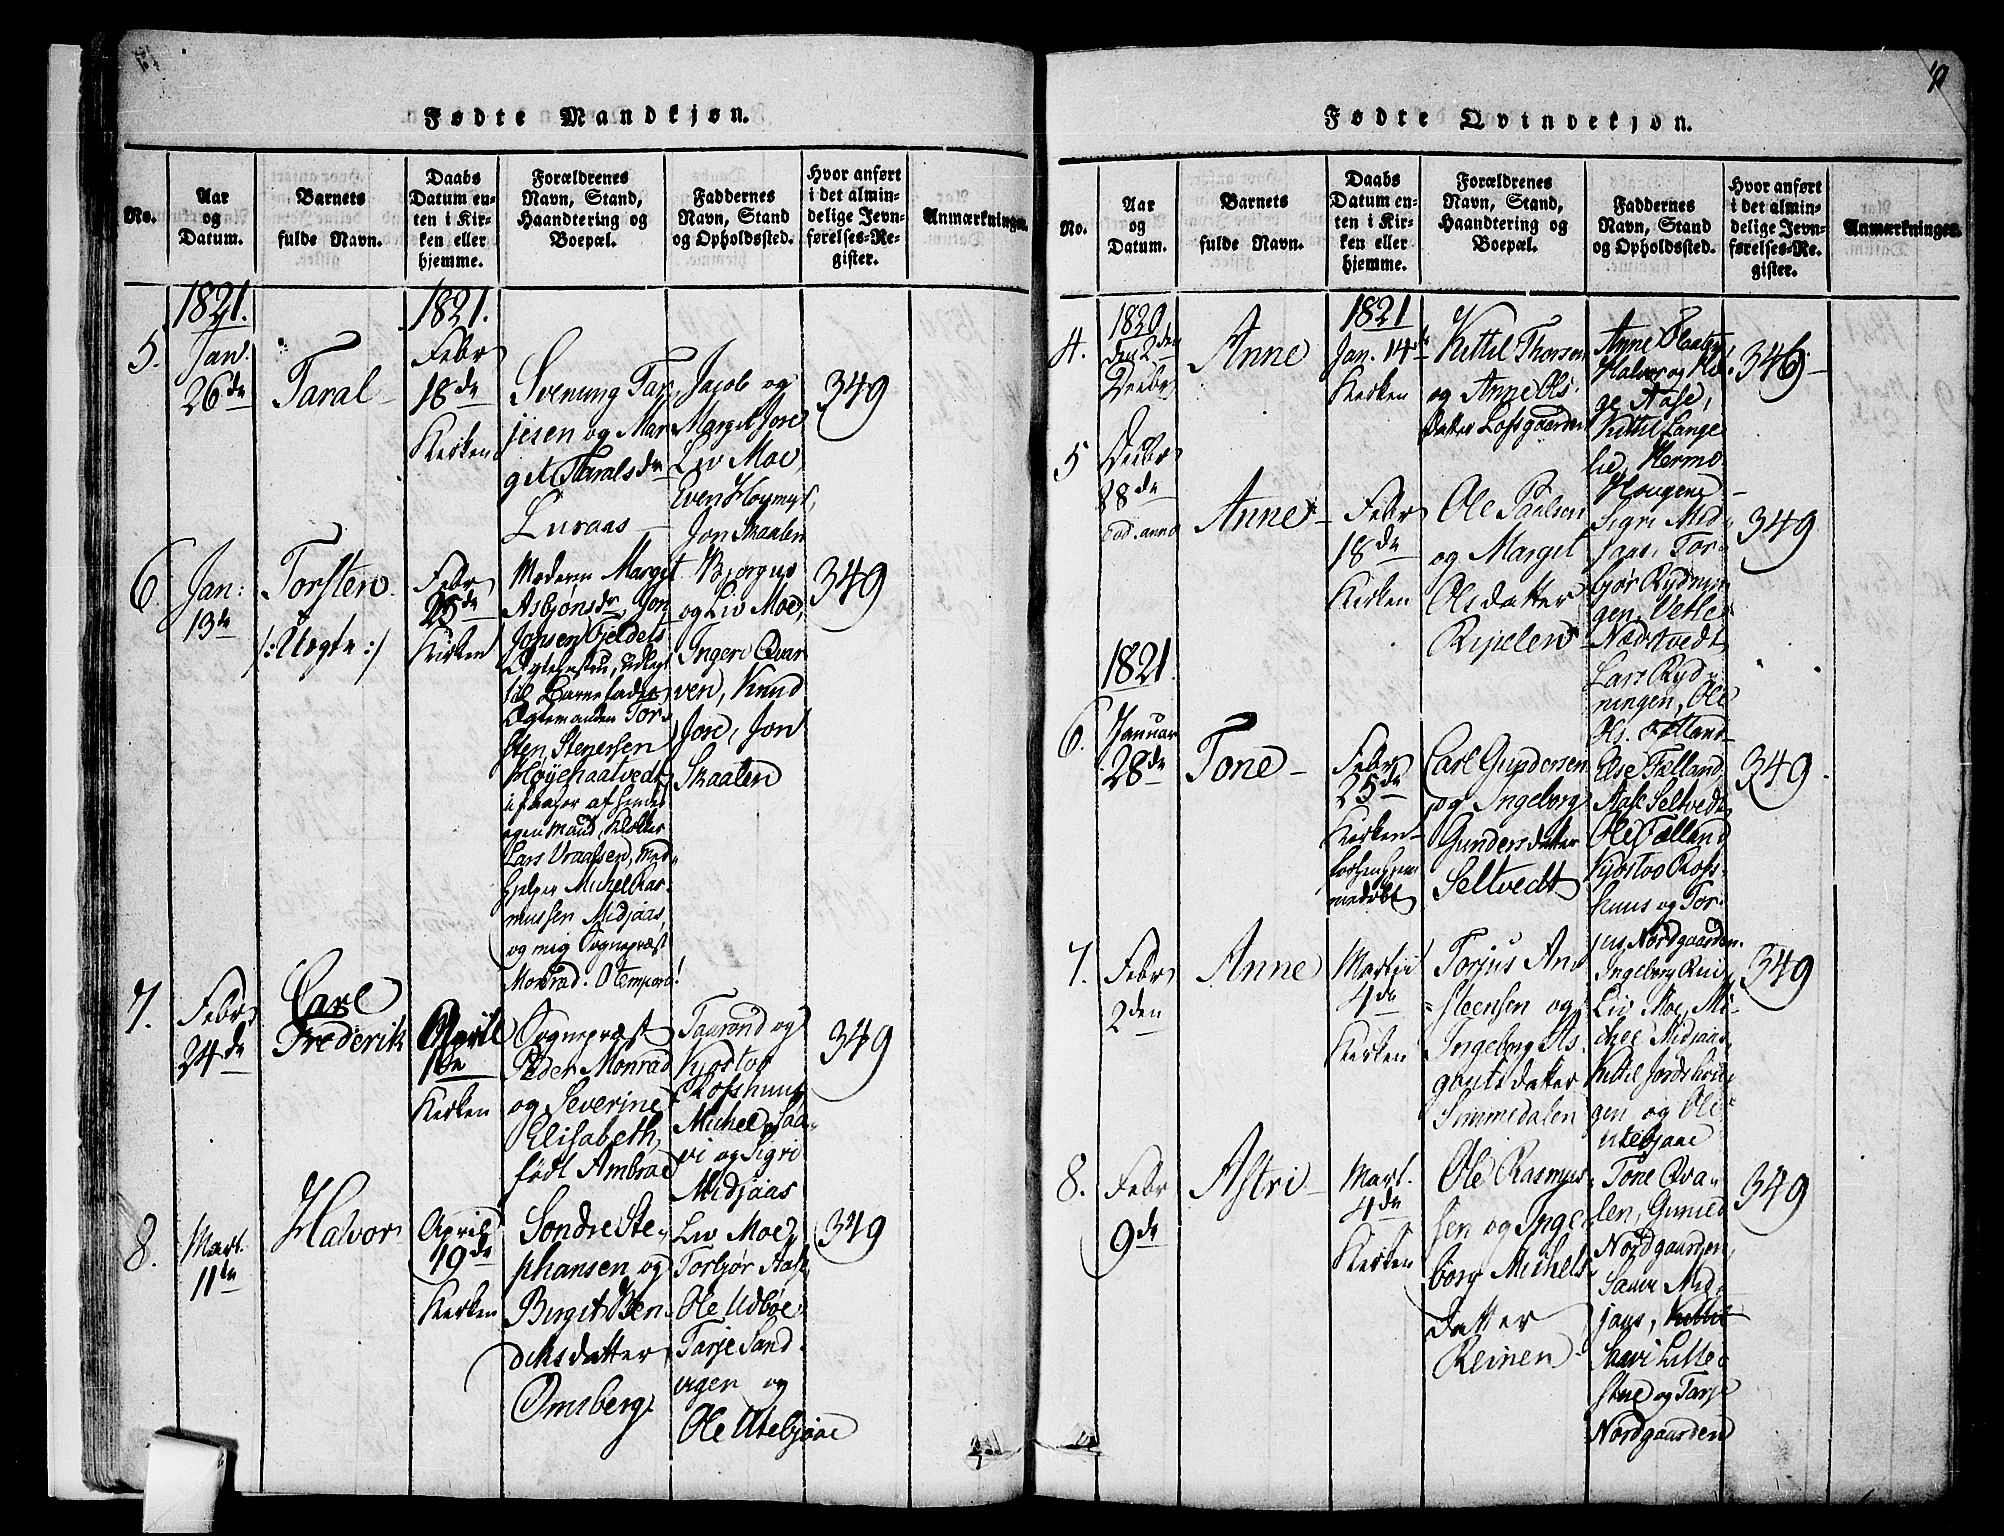 Fødte Mandkjøn.
No.
Aar
og
Datum.
Barnets
fulde Navn.
Daabs
Datum en-
ten i Kir-
ken eller
hjemme.
Forældrenes
Navn, Stand,
Haandtering og
Boepæl.
Faddernes
Navn, Stand
og Opholdssted.
Hvor anført
i det almin-
delige Jevn-
førelses-Re-
gister.
Anmærkninger.
5.
1821.
Jan.
26de
Taral
1821.
Febr
18de
Kirken
Svenung Tar
jesen og Mar
git Taralsdr
Luraas
Jacob og
Margit Jore
Liv Moe
Even Høymyr,
Jon Skaalen
349
6
Jan:
13de
Torsten
/: Uægte :/
Febr
25de
Kirken
Moderen Marget
Asbjønsdr, Jon
Jonsen Fjeldets
Ægtehustru, udlagt
til Barnefader
Ægtemanden Tor-
sten Stenersen
Høyesaatvedt
egen Mand, Klokker
Lars Vraalsen, Med-
hjelper Michel Ras-
mussen Midjaas,
og mig Sognepræst
Monrad. O tempora!
Bjørgus
og Liv Moe,
Ingeri Qvar
ven, Knud
Jore, Jon
Skaalen
349
7.
Febr
24de
Carl
Frederik
April
1ste
Kirken
Sognepræst
Peder Monrad
og Severine
Elisabeth,
født Ambroe
Taurond og
Kjøstov
Rofshuus
Michel, Saa-
vi og Sigri
Midjaas
349
8.
Mart.
11te
Halvor
April
19de
Kirken
Sondre Ste-
phansen og
Birgit Ben
dicksdatter
Omsberg
Liv Moe,
Torbjør Aase,
Ole Udbøe
Tarje Sand-
vigen og
Ole Utebjaae
349
Fødte Qvindekjøn.
No.
Aar
og
Datum.
Barnets
fulde Navn.
Daabs
Datum en-
ten i Kir-
ken eller
hjemme.
Forældrenes
Navn, Stand,
Haandtering og
Boepæl.
Faddernes
Navn, Stand
og Opholdssted.
Hvor anført
i det almin-
delige Jevn-
førelses-Re-
gister.
Anmærkninger.
4.
1820
den 2den
Decbr
Anne
1821
Jan. 14de
Kirken
Kittil Thorsen
og Anne Ols-
datter Lofsgaarden
Anne Slaaten
Halvor og He
ge Aase,
Kittil Lange
lie, Hermo
Hougene
346
5
Decbr
28de
eod. anno
Anne
Febr
18de
Kirken
Ole Paalsen
og Marget
Olsdatter
Ripelen
Sigri Mid-
jaas, Tor-
bjør Rydnin
gen, Vetle
Nædstvedt
Lars Ryd-
ningen, Ole
349
6.
1821.
Januar
28de
Tone
Febr
25de
Kirken
forhen hjem
medøbt
Carl Gundersen
og Ingeborg
Gundersdatter
Seltvedt
Else Felland
Aase Seltvedt
Ole Fælland
Kjøstov Rofs-
huus og Tor-
jus Nordgaarden.
349
7.
Febr
2den
Anne
Martii
4de
Kirken
Torjus An
steensen og
Ingeborg As
gautsdatter
Simmedalen
Ingeborg Rui
Liv Moe, Mi-
chel Midjaas
Kittil
gen og Ole
Utebjaae
349
8.
Febr
9de
Astri
Mart.
4de
Kirken
Ole Rasmus
sen og Inge
borg Michels
datter
Reinen
Tone Qva-
len, Gunild
Nordgaarden,
Saavi Mid-
jaas,
Saavi Litle-
stue og Tarje
Nordgaarden
349